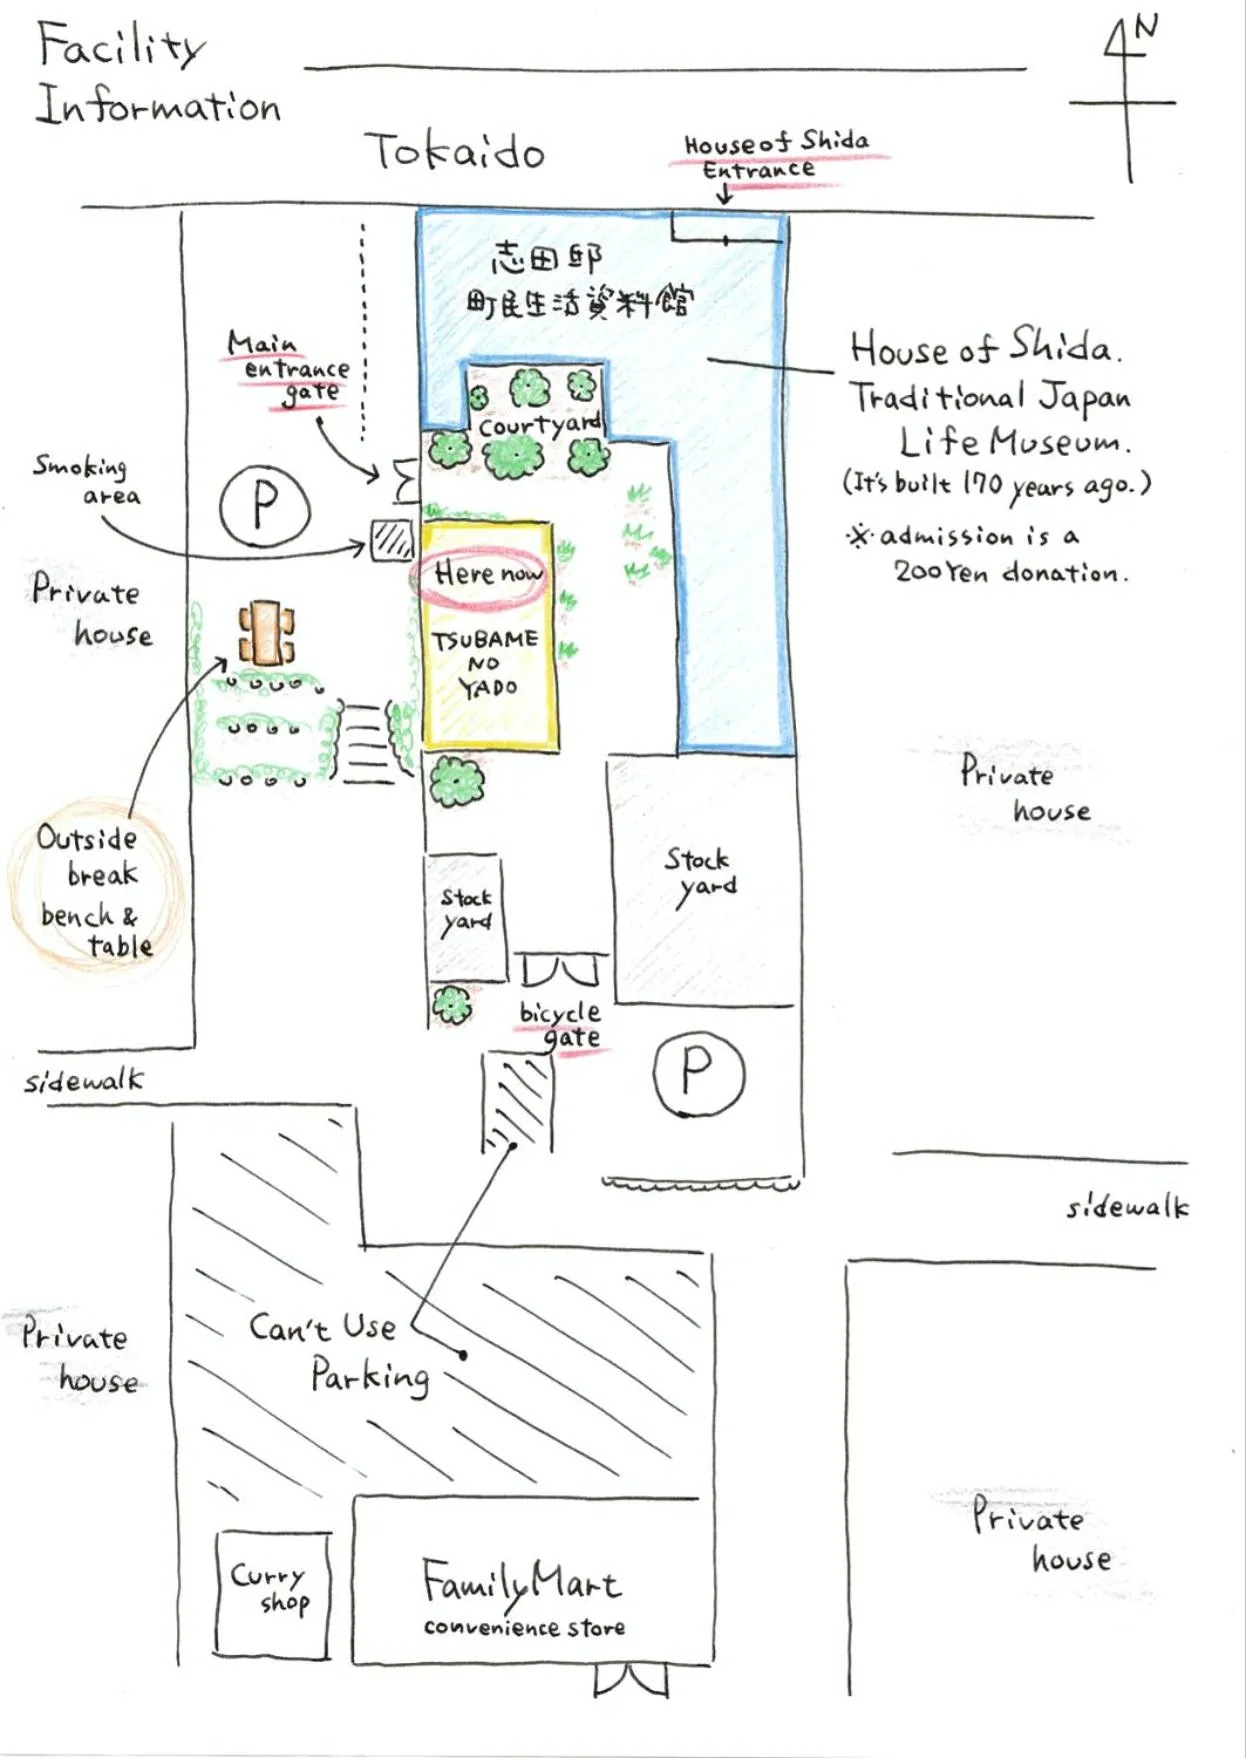 Facility
Information
N
Tokaido
House of Shida
Entrance
志田邸
町民生活資料館
Main
entrance
gate
House of Shida.
Traditional Japan
Life Museum.
(It's built 170 years ago.)
※ admission is a
200Yen donation.
courtyard
Smoking
area
P
Here now
TSUBAME
NO
YADO
Private
house
Private
house
Outside
break
bench &
table
Stock
yard
Stock
yard
bicycle
gate
P
sidewalk
sidewalk
Can't Use
Parking
Private
house
Private
house
Curry
shop
FamilyMart
convenience store